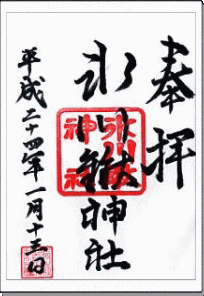 奉拝
氷川鍬神社
平成二十四年一月十三日